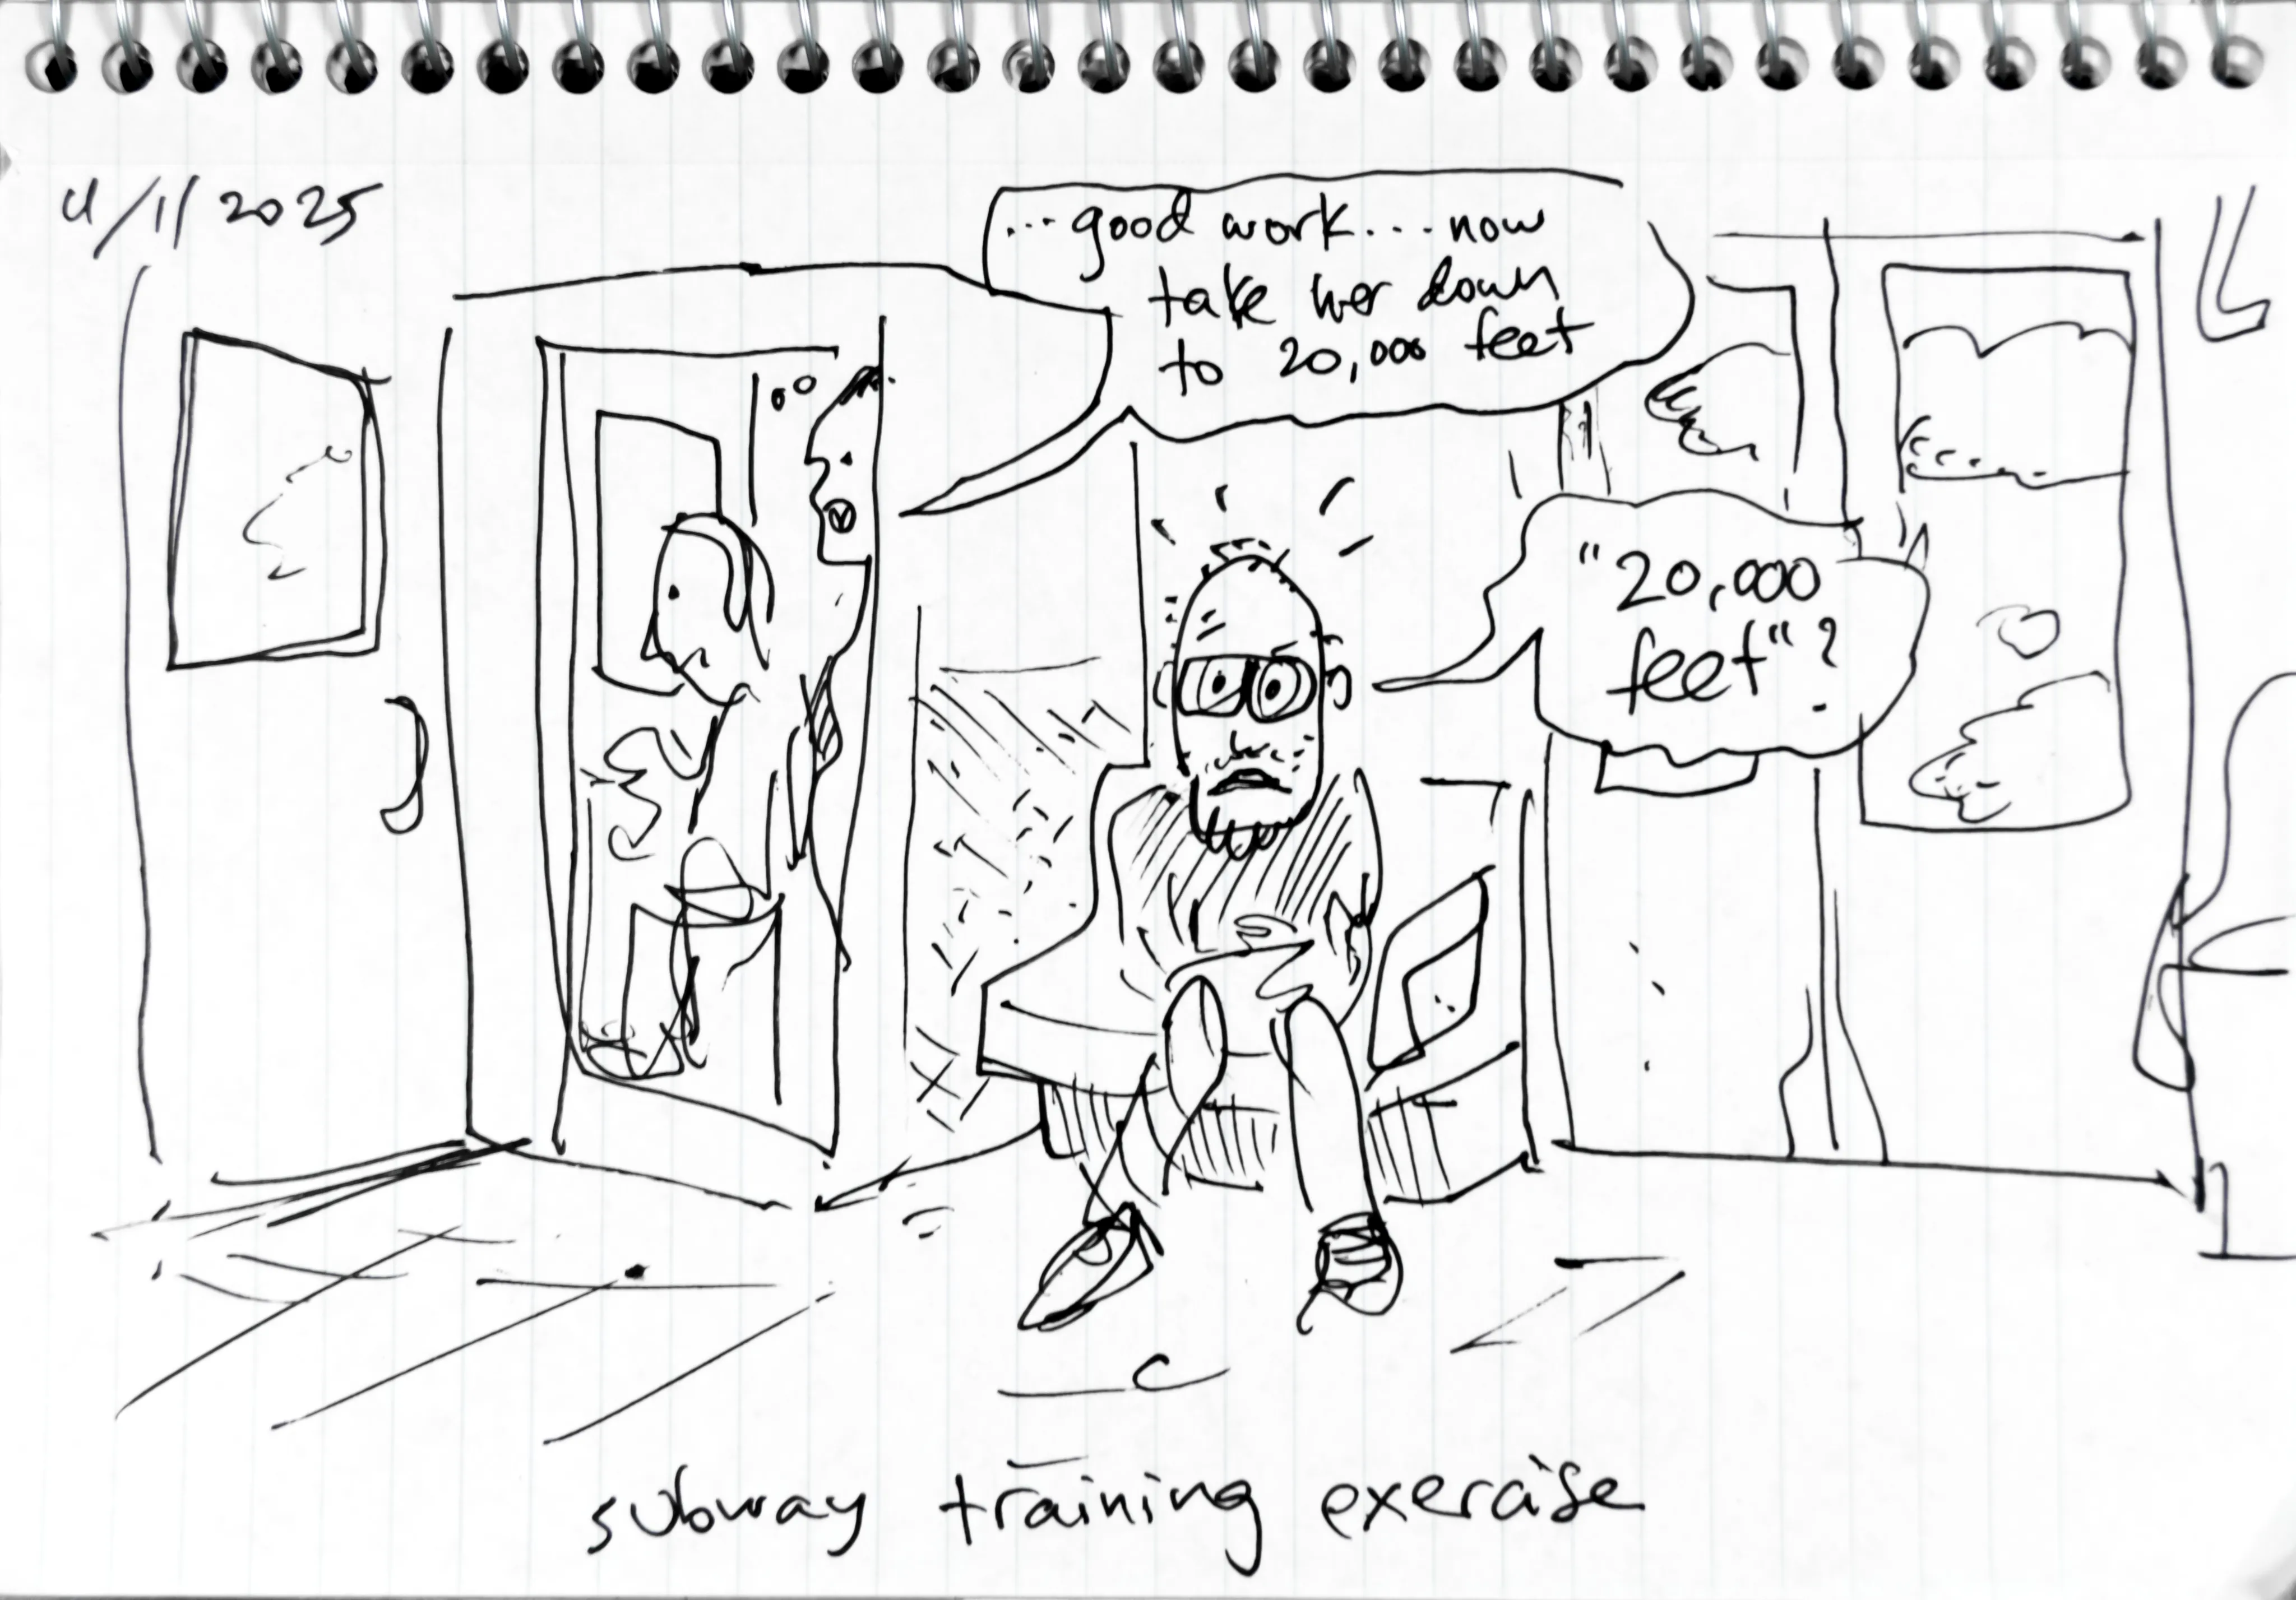 4/11 2025
...good work....now
take her down
to 20,000 feet
"20,000
feet"?
subway training exercise